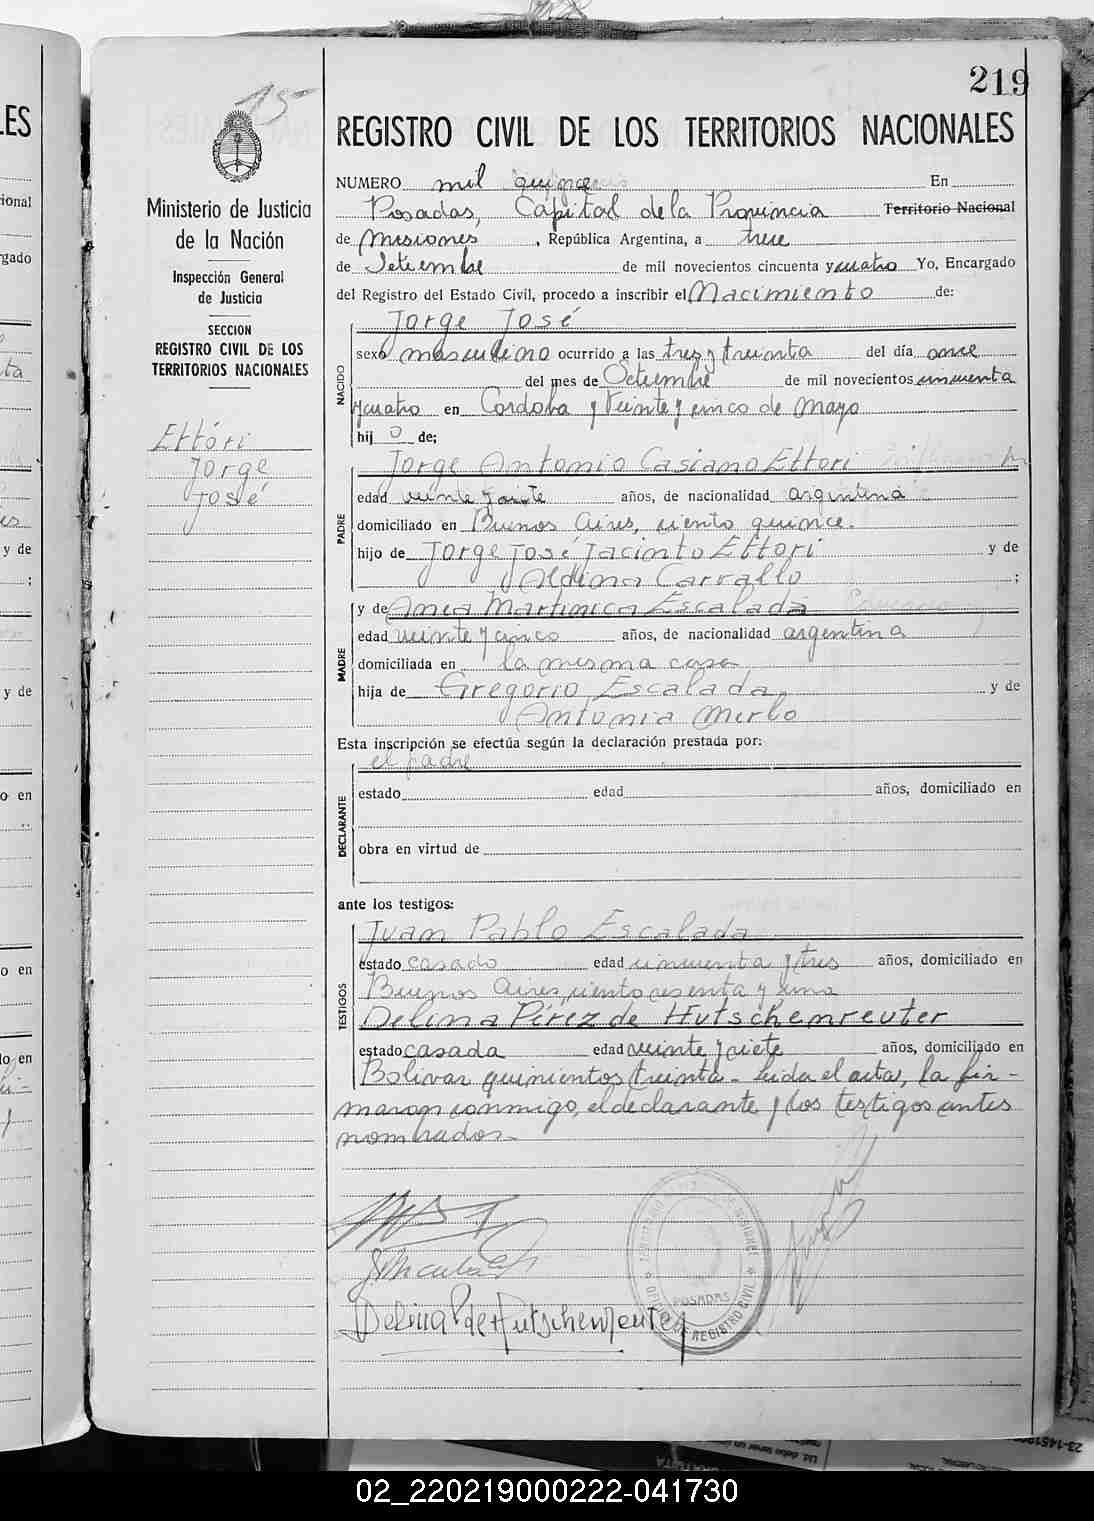 219
15
REGISTRO CIVIL DE LOS TERRITORIOS NACIONALES
Ministerio de Justicia
de la Nación
Inspección General
de Justicia
SECCION
REGISTRO CIVIL DE LOS
TERRITORIOS NACIONALES
Ettóri
Jorge
José
NUMERO mil quince En
Posadas, Capital de la Provincia Territorio Nacional
de Misiones, República Argentina, a trece
de Setiembre de mil novecientos cincuenta y cuatro Yo, Encargado
del Registro del Estado Civil, procedo a inscribir el Nacimiento de:
Jorge José
NACIDO
sexo masculino ocurrido a las tres y treinta del día once
del mes de Setiembre de mil novecientos cincuenta
y cuatro en Córdoba y Veinte y cinco de Mayo
hij o de;
Jorge Antonio Casiano Ettori
PADRE
edad veinte y siete años, de nacionalidad argentina
domiciliado en Buenos Aires, ciento quince.
hijo de Jorge José Jacinto Ettori y de
Aldina Carvallo ;
y de Ania Martinica Escalada
MADRE
edad veinte y cinco años, de nacionalidad argentina
domiciliada en la misma casa
hija de Gregorio Escalada, y de
Antonia Merlo
Esta inscripción se efectúa según la declaración prestada por:
el padre
DECLARANTE
estado edad años, domiciliado en
obra en virtud de
ante los testigos:
Juan Pablo Escalada
TESTIGOS
estado casado edad cincuenta y tres años, domiciliado en
Buenos Aires, ciento sesenta y uno
Delina Pérez de Hutschenreuter
estado casada edad veinte y siete años, domiciliado en
Bolivar quinientos treinta - Leida el acta, la fir-
maron conmigo, el declarante y los testigos antes
nombrados.-
Delina P de Hutschenreuter
POSADAS
REGISTRO CIVIL
02_220219000222-041730